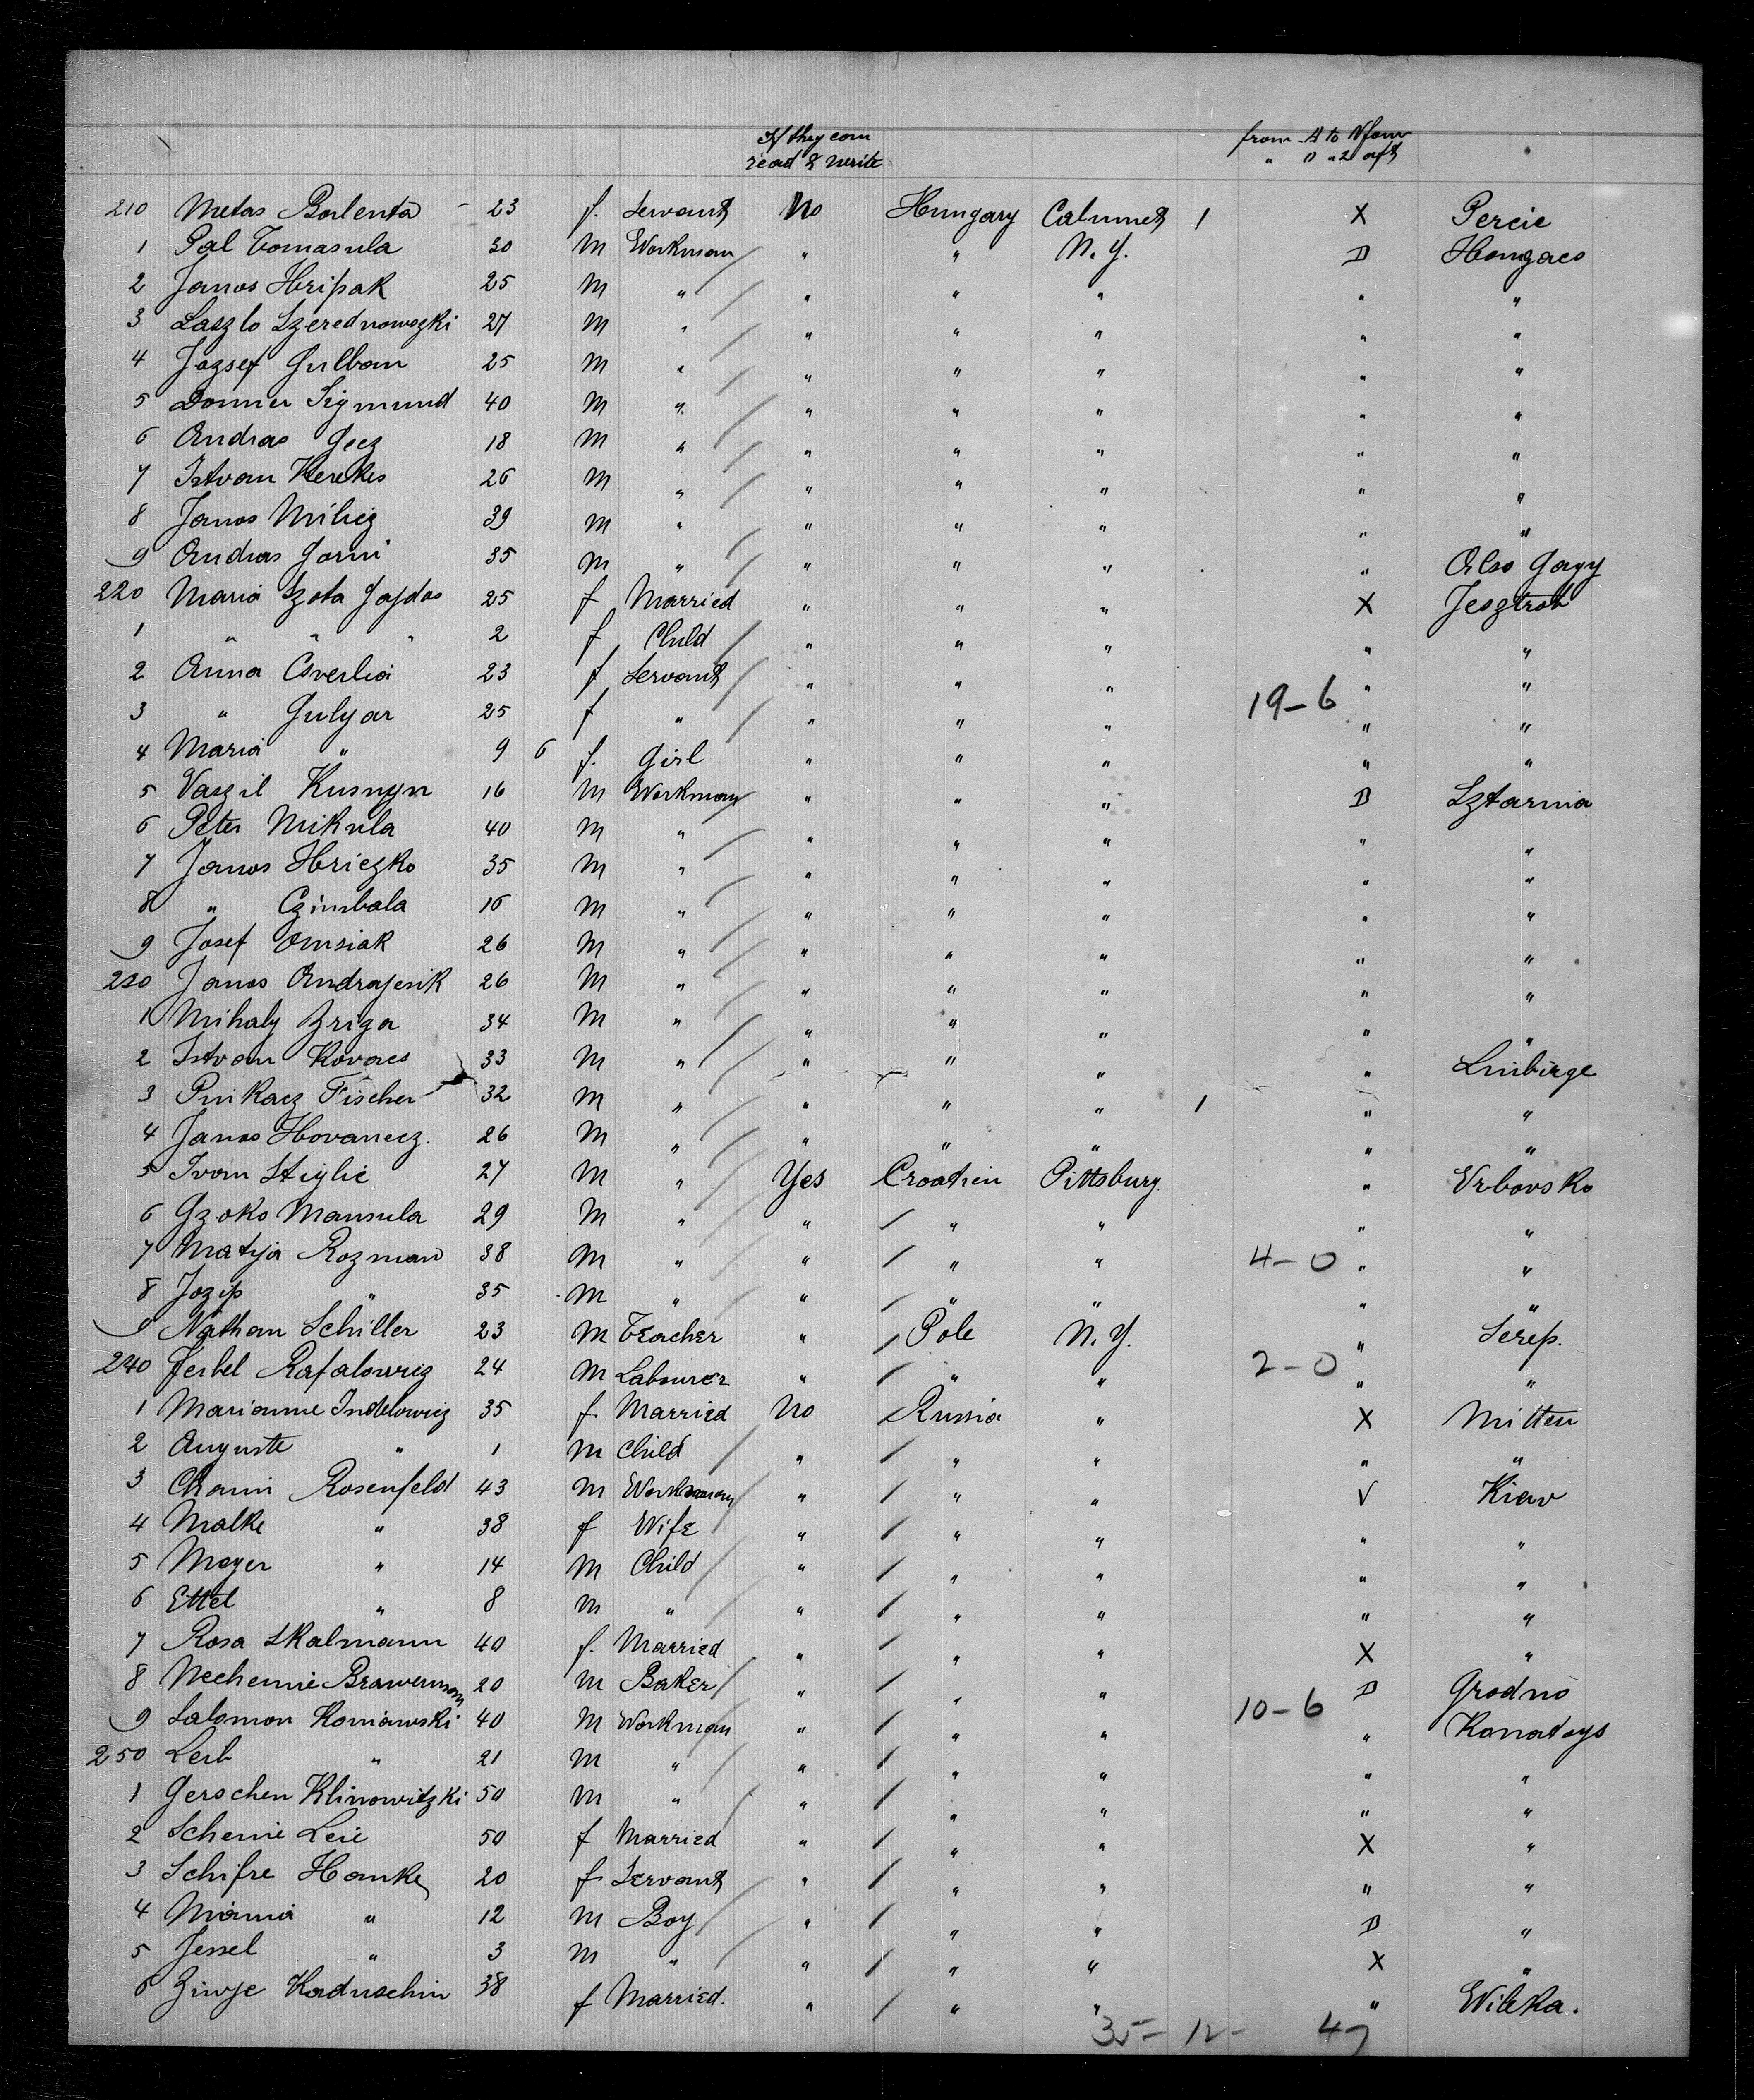 If they can from A to V fore
read & write " D " 2 aft
210 Metas Borlenta - 23 f. Servant No Hungary Calumet 1 X Percie
1 Pal Tomasula 30 M Workman " " N. Y. D Hongaes
2 Janos Hripak 25 M " " " " " "
3 Laszlo Szerednowszki 27 M " " " " " "
4 Jozsef Gulban 25 M " " " " " "
5 Donner Sigmund 40 M " " " " " "
6 Andras Gecz 18 M " " " " " "
7 Istvan Kerekes 26 M " " " " " "
8 Janos Mihicz 39 M " " " " " "
9 Andras Jorni 35 M " " " " " Also Gagy
220 Maria Szota Gajdos 25 f Married " " " X Jesztrob
1 " " " 2 f Child " " " " "
2 Anna Cverlia 23 f Servant " " " " "
3 " Gulyar 25 f " " " " 19-6 " "
4 Maria " 9 6 f. Girl " " " " "
5 Vaszil Kusnyn 16 M Workman " " " D Sztarnia
6 Peter Mikula 40 M " " " " " "
7 Janos Hriczko 35 M " " " " " "
8 " Czimbala 16 M " " " " " "
9 Josef Omsiak 26 M " " " " " "
230 Janos Andrajesik 26 M " " " " " "
1 Mihaly Briga 34 M " " " " " "
2 Istvan Kovacs 33 M " " " " " Linbirge
3 Pinkacz Fischer 32 M " " " " 1 " "
4 Janos Hovanecz. 26 M " " " " " "
5 Ivan Stiglic 27 M " Yes Croatien Pittsburg. " Vrbovsko
6 Gzoko Mansula 29 M " " " " " "
7 Matija Rozman 38 M " " " " 4-0 " "
8 Jozip " 35 M " " " " " "
9 Nathan Schiller 23 M Teacher " Pole N. Y. " Serep.
240 Feibel Rafalowicz 24 M Labourer " " " 2-0 " "
1 Marianne Indelowicz 35 f. Married No Russia " X Mitten
2 Auguste " 1 M Child " " " " "
3 Chaim Rosenfeld 43 M Workman " " " V Kiew
4 Malke " 38 f Wife " " " " "
5 Meyer " 14 M Child " " " " "
6 Ettel " 8 M " " " " " "
7 Rosa Skalmann 40 f. Married " " " X "
8 Nechemie Brawerman 20 M Baker " " " D Grodno
9 Salomon Koniawski 40 M Workman " " " 10-6 " Konatoys
250 Leib " 21 M " " " " " "
1 Gerschen Klinowitzki 50 M " " " " " "
2 Scheine Leie 50 f Married " " " X "
3 Schifre Hanke 20 f Servant " " " " "
4 Mania " 12 M Boy " " " D "
5 Jessel " 3 M " " " " X "
6 Ziwje Kaduschin 38 f Married. " " " " Wilka.
35- 12- 47